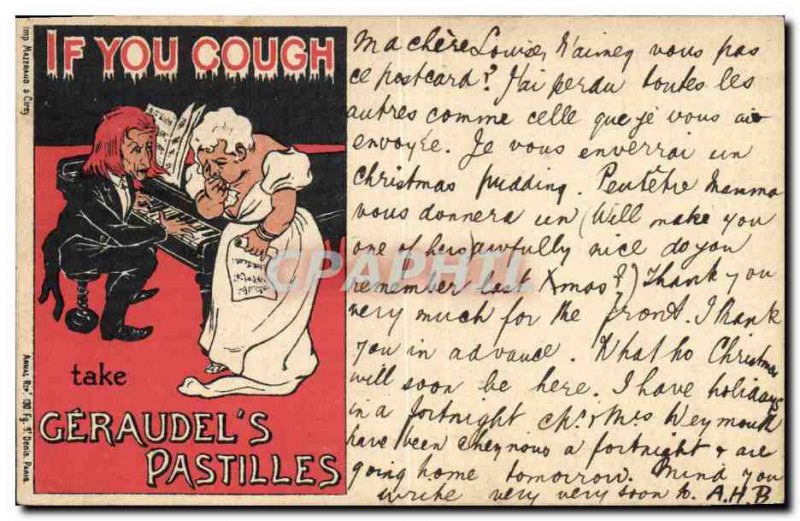 Imp. MAZERAND & Cirey
IF YOU COUGH
take
GÉRAUDEL'S
PASTILLES
Ma chère Louise, N'aimez vous pas
ce postcard? J'ai perdu toutes les
autres comme celle que je vous ai
envoyée. Je vous enverrai un
Christmas pudding. Peutêtre Mamma
vous donnera un (Will make you
one of her awfully nice do you
remember last Xmas?) Thank you
very much for the front. I thank
you in advance. What ho Christmas
will soon be here. I have holidays
in a fortnight & Mrs Weymouth
have been a fortnight & are
going home tomorrow. Mind you
write very very soon to A.H.B
CPAPHIL